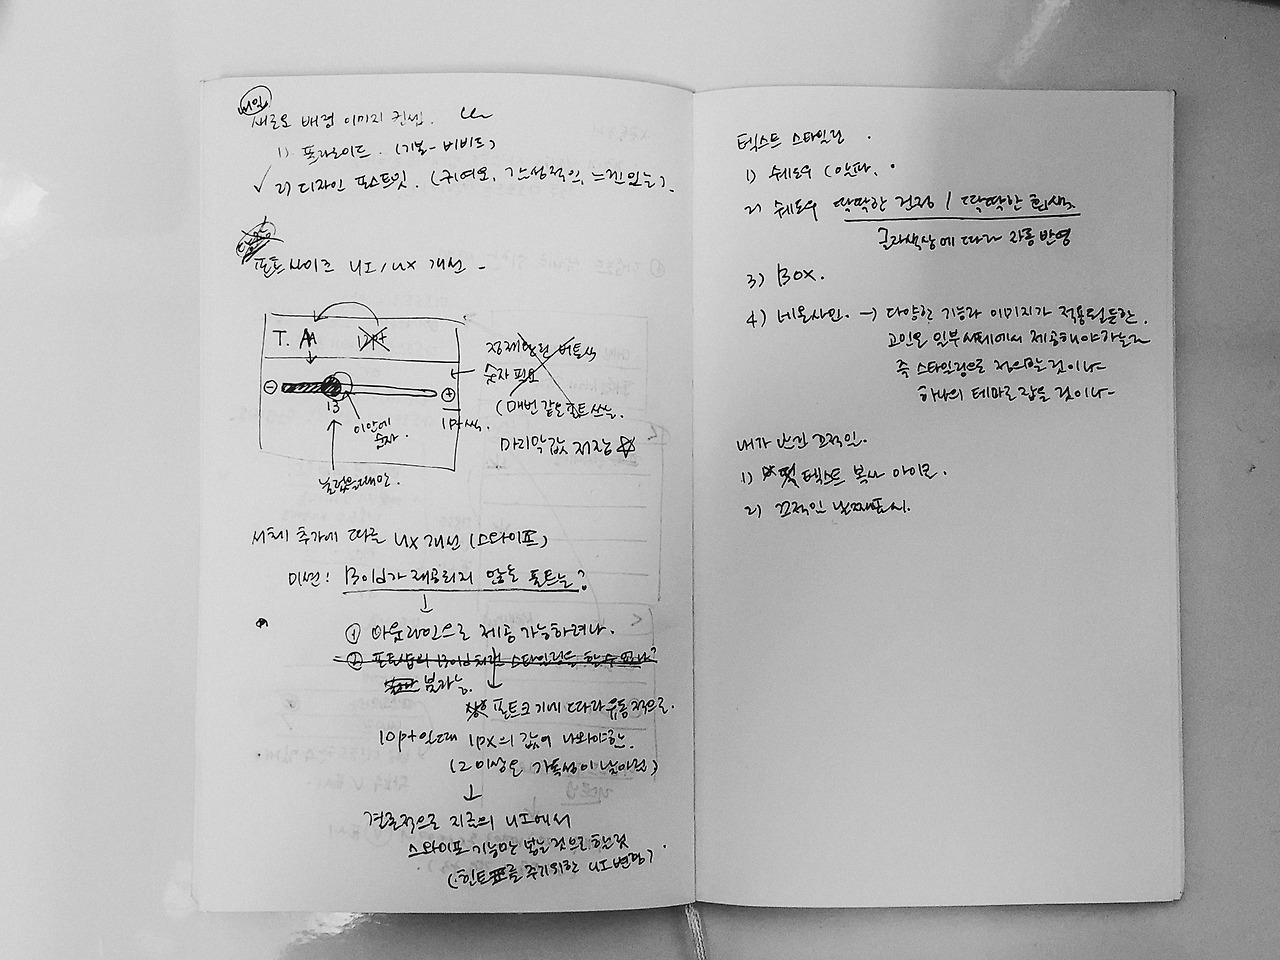 내일
새로운 배경 이미지 컨셉.
1) 폴라로이드. (기본-비비드)
✓ 2) 디자인 포스트잇. (귀여운, 감성적인, 느낌있는).
폰트사이즈 UI/UX 개선 -
T. A
12pt
⊖ ⊕
13
이안에
숫자
1pt씩.
눌렀을때만.
숫자 필요
(매번 같은폰트 쓰는.
마지막값 저장 ☆
서체 추가에 따른 UX 개선 (스와이프)
미션! Bold가 제공되지 않는 폰트는?
↓
① 아웃라인으로 제공 가능하려나.
② 포토샵의 Bold처럼 스타일링은 할수 없나?
불가능.
폰트크기에 따라 유동적으로.
10pt일때 1px의 값이 나와야함.
(2이상은 가독성이 낮아짐)
↓
결론적으로 지금의 UI에서
스와이프 기능만 넣는것으로 할것.
(힌트를 주기위한 UI변경)
텍스트 스타일은.
1) 쉐도우 (알파.
2) 쉐도우 딱딱한 검정 / 딱딱한 흰색.
글자색상에 따라 자동 반영
3) BOX.
4) 네온사인. → 다양한 기능과 이미지가 적용될듯한.
고민은 일부 서체에서 제공해야하는가
즉 스타일링으로 정의할 것이냐
하나의 테마로 잡을 것이냐
내가 남긴 끄적인.
1) 텍스트 복사 아이콘.
2) 끄적인 날짜표시.